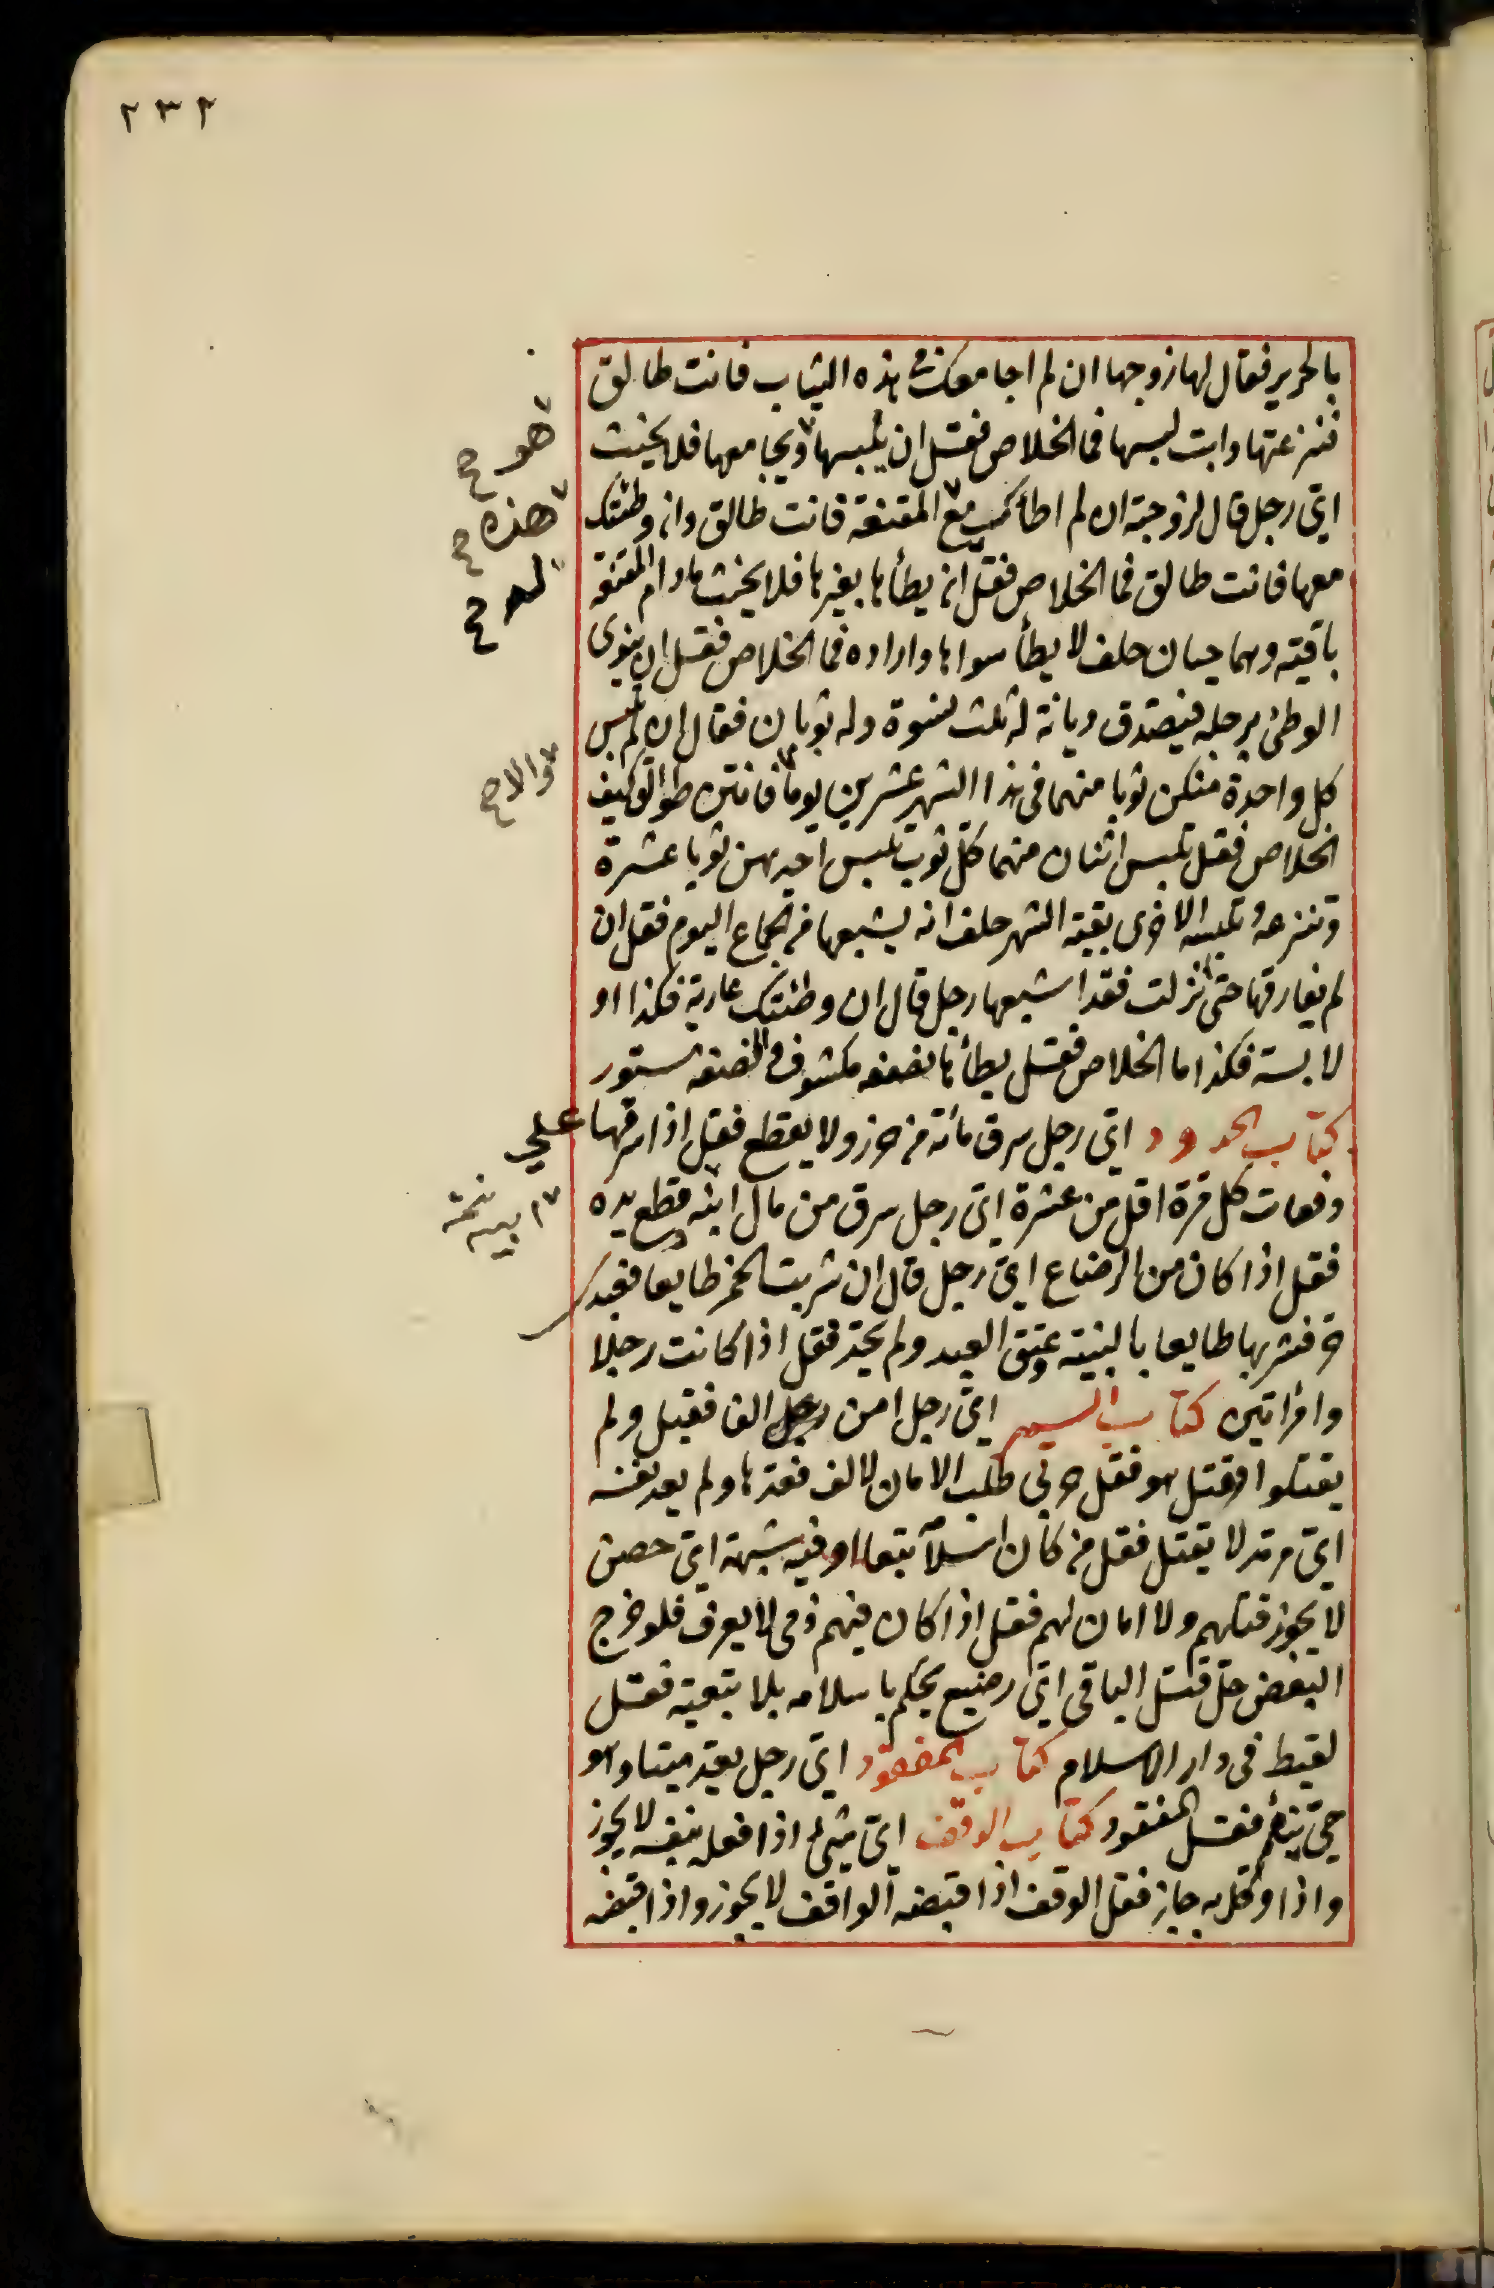 ٢٣٢
بالحرير فقال لها زوجها ان لم اجامعك في هذه الثياب فانت طالق
فنزعتها وابت لبسها فما الخلاص فقل ان يلبسها ويجامعها فلا يحنث
اي رجل قال لزوجته ان لم اطأك مع المقنعة فانت طالق وان وطئتك
معها فانت طالق فما الخلاص فقل ان يطأها بغيرها فلا يحنث مادام المقنعة
باقية وهما حيان حلف لا يطأ سواها واراده فما الخلاص فقل ان ينوى
الوطئ برجله فيصدق ديانة له ثلث نسوة وله ثوبان فقال ان لم تلبس
كل واحدة منكن ثوبا منهما في هذا الشهر عشرين يوما فانتن طوالق كيف
الخلاص فقل تلبس اثنان منهما كل ثوب تلبس احديهن ثوبا عشرة
وتنزعه وتلبسه الاخرى بقية الشهر حلف انه يشبعها من الجماع اليوم فقل ان
لم يفارقها حتى انزلت فقد اشبعها رجل قال ان وطئتك عارية فكذا او
لابسة فكذا ما الخلاص فقل يطأها نصفه مكشوف والنصف مستور
كتاب الحدود اي رجل سرق مائة من حرز ولا يقطع فقل اذا سرقها على
دفعات كل مرة اقل من عشرة اي رجل سرق من مال ابنه وقطع يده
فقل اذا كان من الرضاع اي رجل قال ان شربت الخمر طايعا فعبدك
حر فشربها طايعا بالبينة وعتق العبد ولم يحد فقل اذا كانت رجلا
وامرأتين كتاب السير اي رجل امن رجل الفا فقتل ولم
يقتلوا فقتل هو فقل حربي طلب الامان لالف فعدها ولم يعد نفسه
اي مرتد لا يقتل فقل من كان اسلامه تبعا او فيه شبهة اي حصن
لا يجوز قتلهم ولا امان لهم فقل اذا كان فيهم ذمي لا يعرف فلو خرج
البعض حل قتل الباقي اي رضيع يحكم باسلامه بلا تبعية فقل
لقيط في دار الاسلام كتاب المفقود اي رجل يعد ميتا وهو
حي ينعم فقل المفقود كتاب الوقف اي شئ اذا فعله بنفسه لا يجوز
واذا وكل به جاز فقل الوقف اذا قبضه الواقف لا يجوز واذا قبضه
هو صح
هذه صح
له صح
والا صح